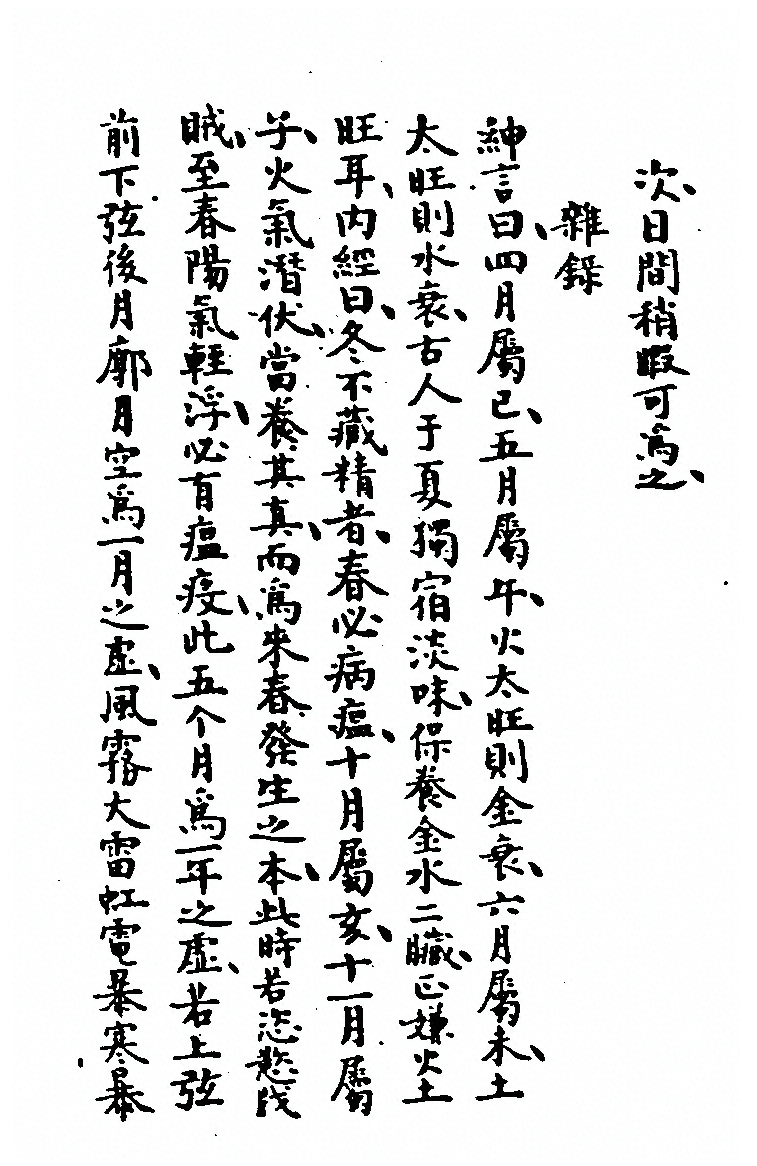 次、日間稍暇可為之、
雜錄
紳言曰、四月屬巳、五月屬午、火太旺則金衰、六月屬未、土
太旺則水衰、古人于夏獨宿淡味、保養金水二臟、正嫌火土
旺耳、內經曰、冬不藏精者、春必病瘟、十月屬亥、十一月屬
子、火氣潛伏、當養其真、而為來春發生之本、此時若恣慾戕
賊、至春陽氣輕浮、必有瘟疫、此五个月為一年之虛、若上弦
前下弦後月廓月空為一月之虛、風霧大雷虹電暴寒暴